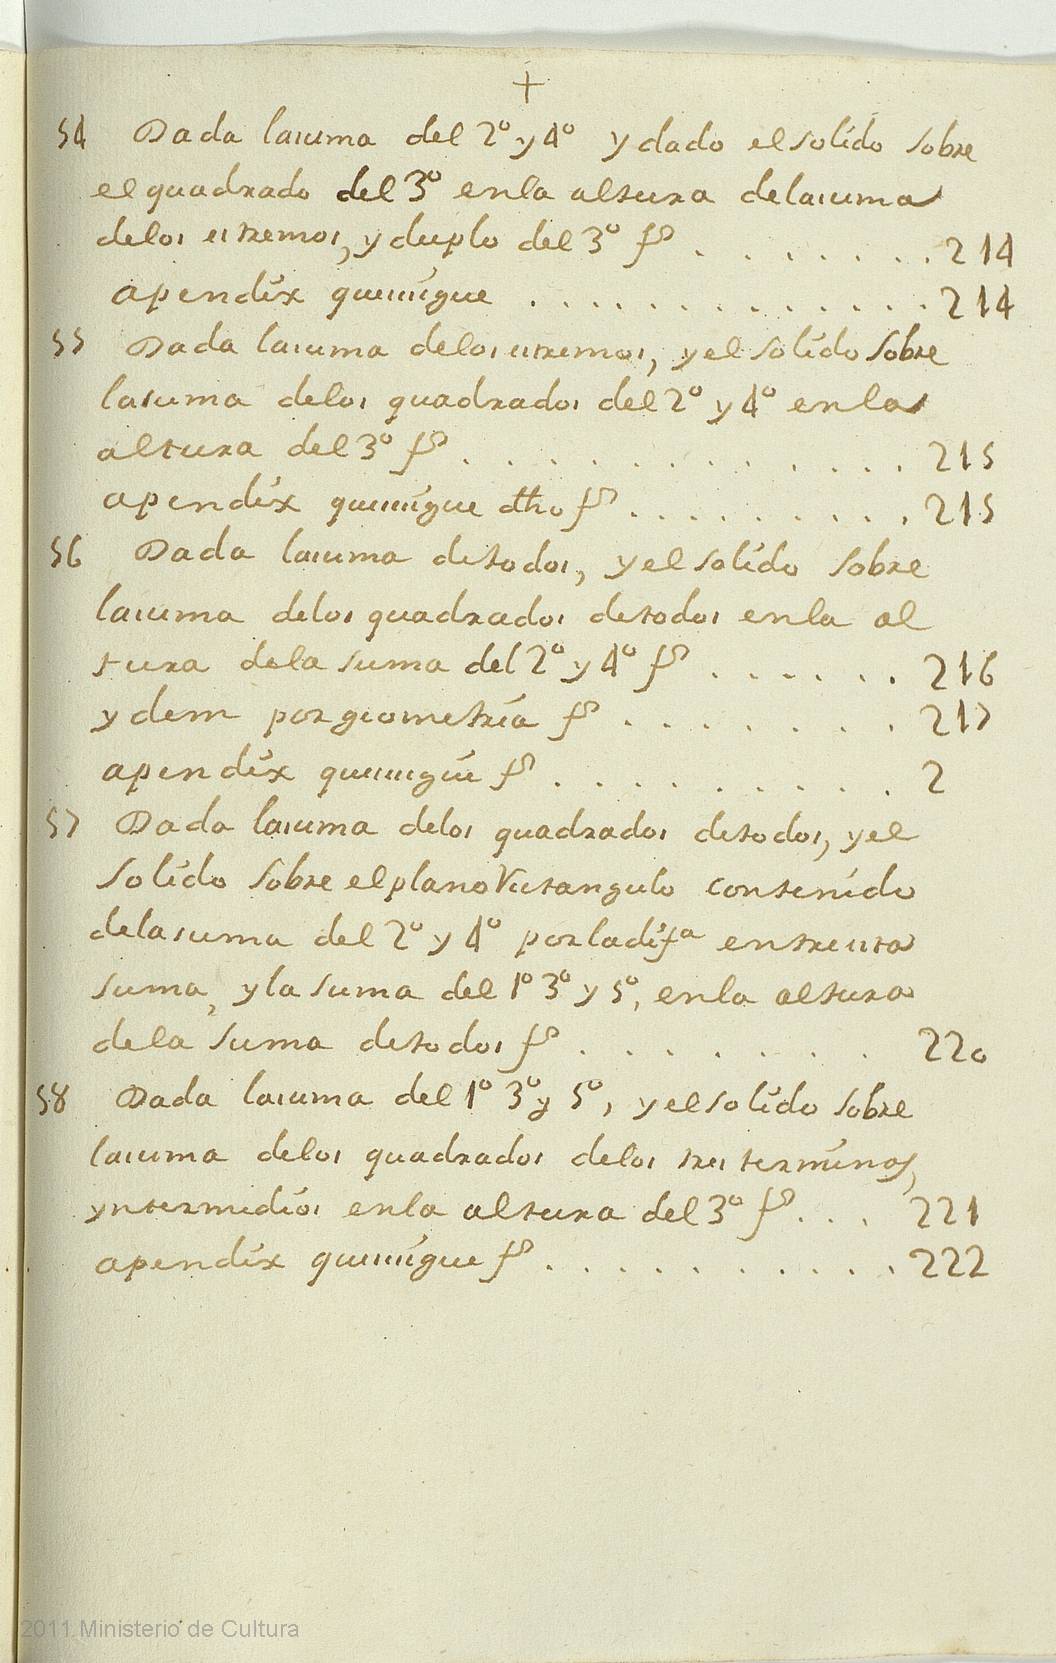 +
54 Dada lasuma del 2º y 4º y dado el solido sobre
el quadrado del 3º enla altura delasuma
delos estremos, y duplo del 3º fº . . . . . . . . 214
apendix quesesigue . . . . . . . . . . . . . 214
55 Dada lasuma delos estremos, y el solido sobre
lasuma delos quadrados del 2º y 4º enla
altura del 3º fº . . . . . . . . . . . . . 215
apendix quesesigue dho fº . . . . . . . . . . 215
56 Dada lasuma detodos, y el solido sobre
lasuma delos quadrados detodos enla al
tura dela suma del 2º y 4º fº . . . . . . 216
ydem porgeometria fº . . . . . . . . 217
apendix quesesigue fº . . . . . . . . . . . 2
57 Dada lasuma delos quadrados detodos, y el
Solido sobre el plano Rectangulo contenido
delasuma del 2º y 4º porladifª entreesta
suma, y la suma del 1º 3º y 5º, enla altura
dela suma detodos fº . . . . . . . . 220
58 Dada lasuma del 1º 3º y 5º, y el solido sobre
lasuma delos quadrados delos tres terminos,
yntermedios enla altura del 3º fº . . . 221
apendix quesesigue fº . . . . . . . . . . . 222
2011 Ministerio de Cultura